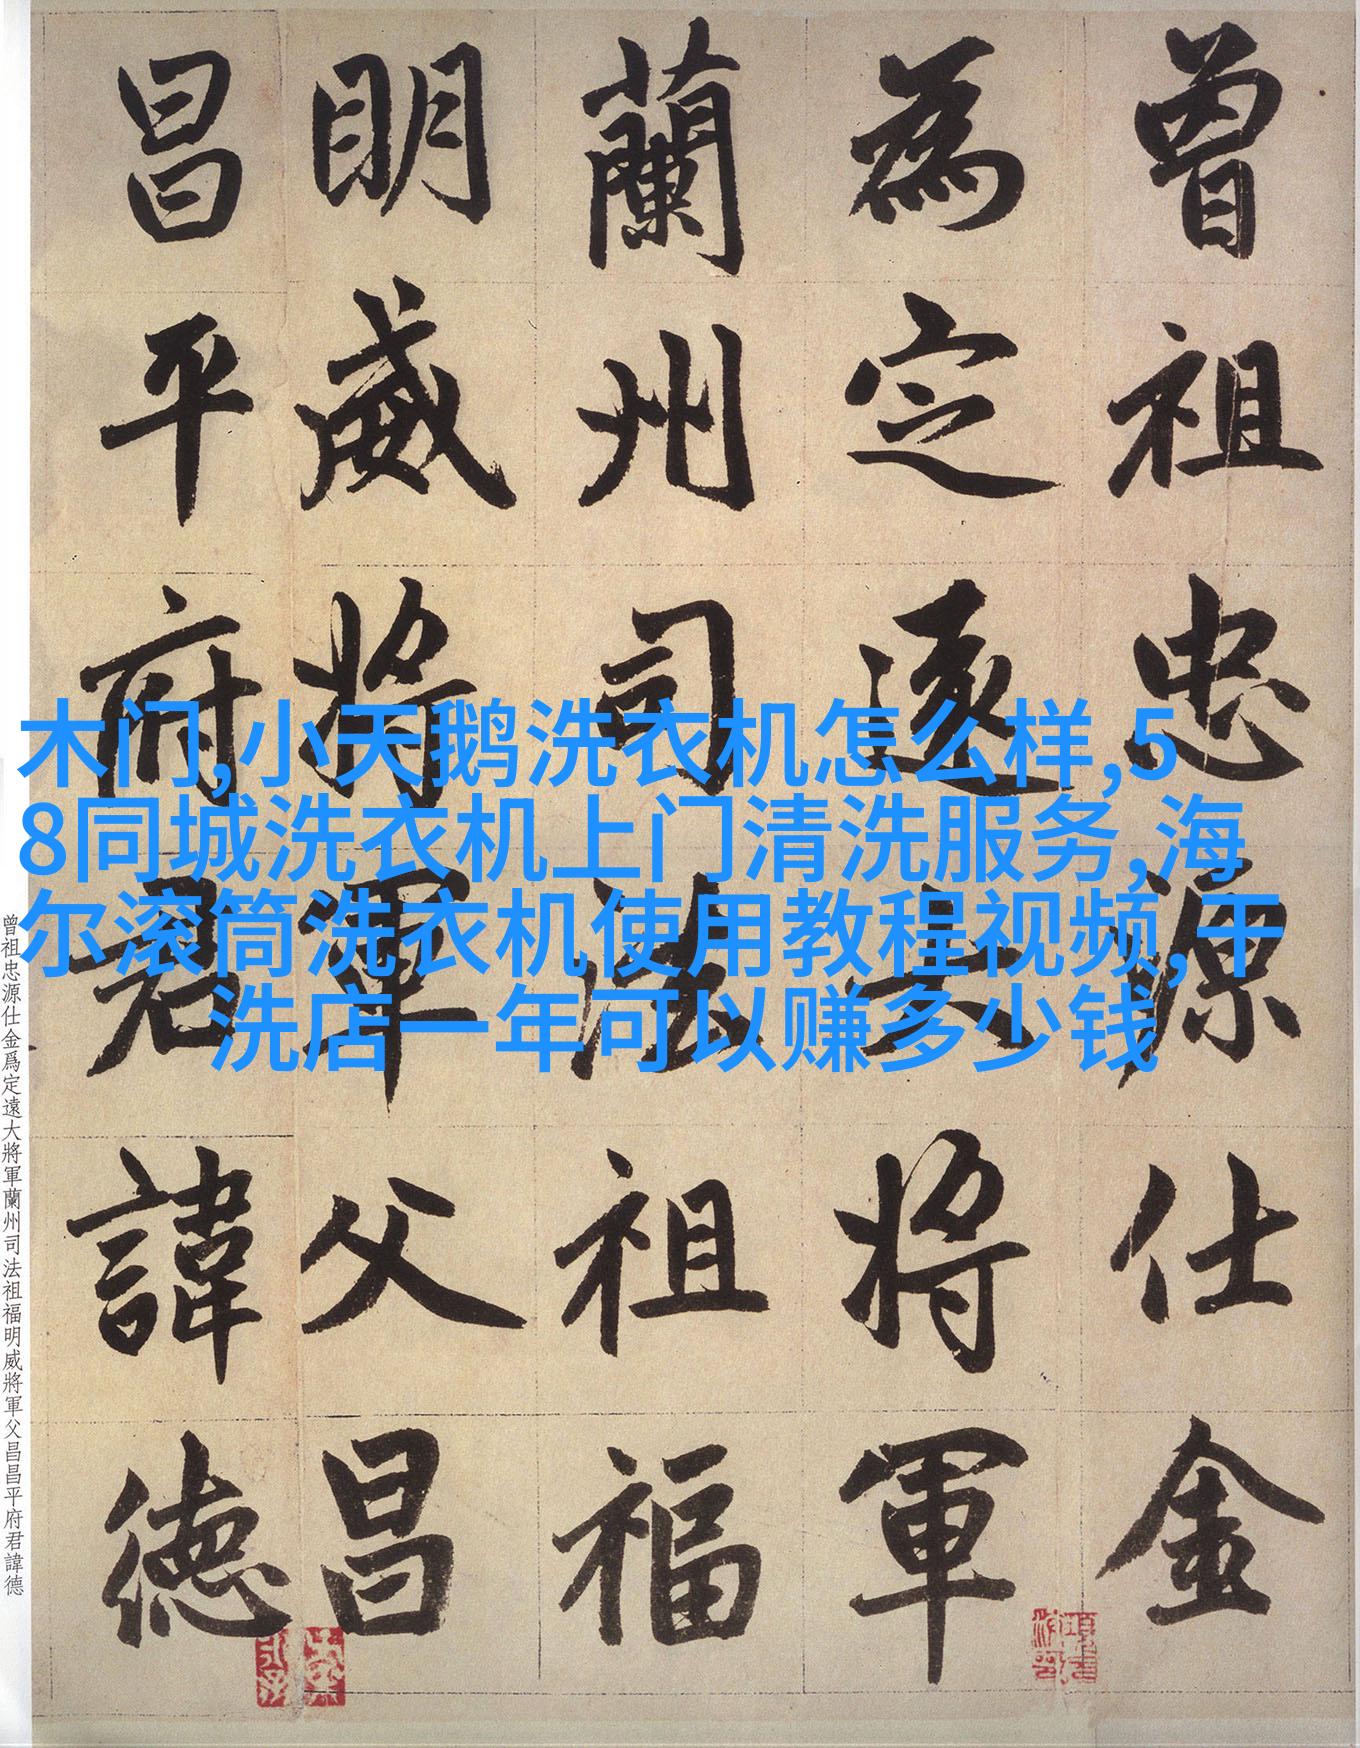 曾祖忠源仕金
為定遠大將軍
蘭州司法祖福
明威將軍父昌
昌平府君諱德
木门,小天鹅洗衣机怎么样,5
8同城洗衣机上门清洗服务,海
尔滚筒洗衣机使用教程视频,干
洗店一年可以赚多少钱
曾祖忠源仕金爲定遠大將軍蘭州司法祖福明威將軍父昌昌平府君諱德